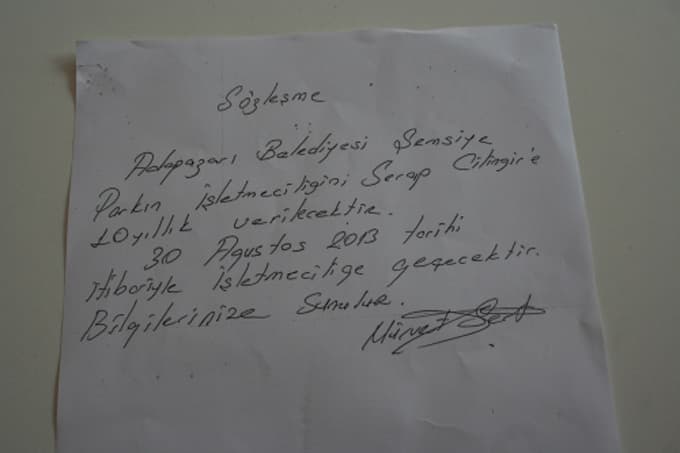 Sözleşme
Adapazarı Belediyesi Şemsiye
Parkın işletmeciliğini Serap Cilingir'e
10 yıllık verilecektir.
30 Ağustos 2013 tarihi
itibariyle işletmeciliğe geçecektir.
Bilgilerinize Sunulur.
Mürvet Sert